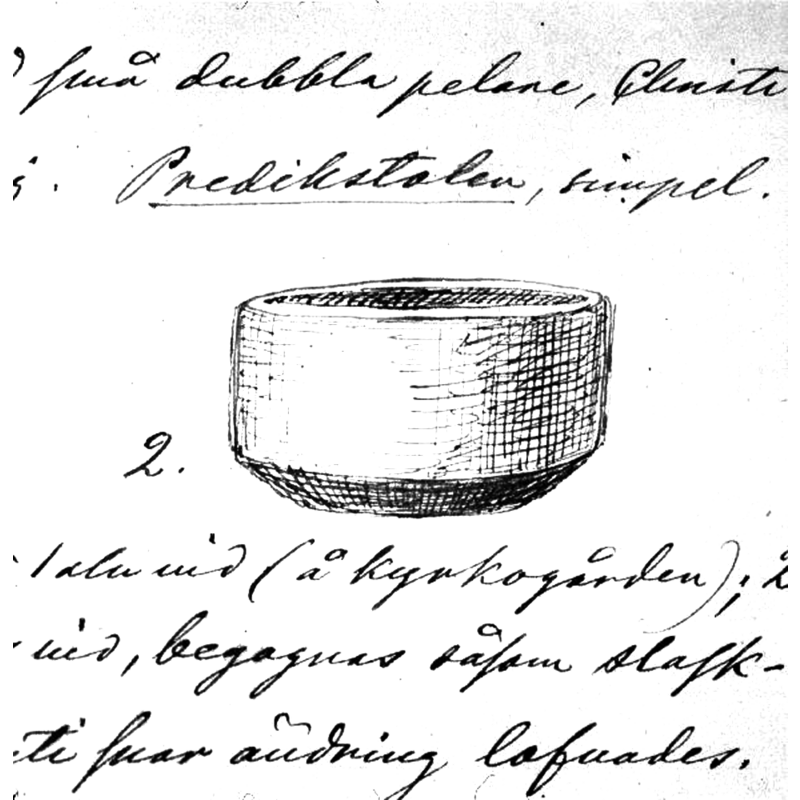 små dubbla pelare, Christi
s. Predikstolen, simpel.
2.
1 aln vid (å kyrkogården); 2
vid, begagnas såsom slask-
ti snar ändring lofvades.